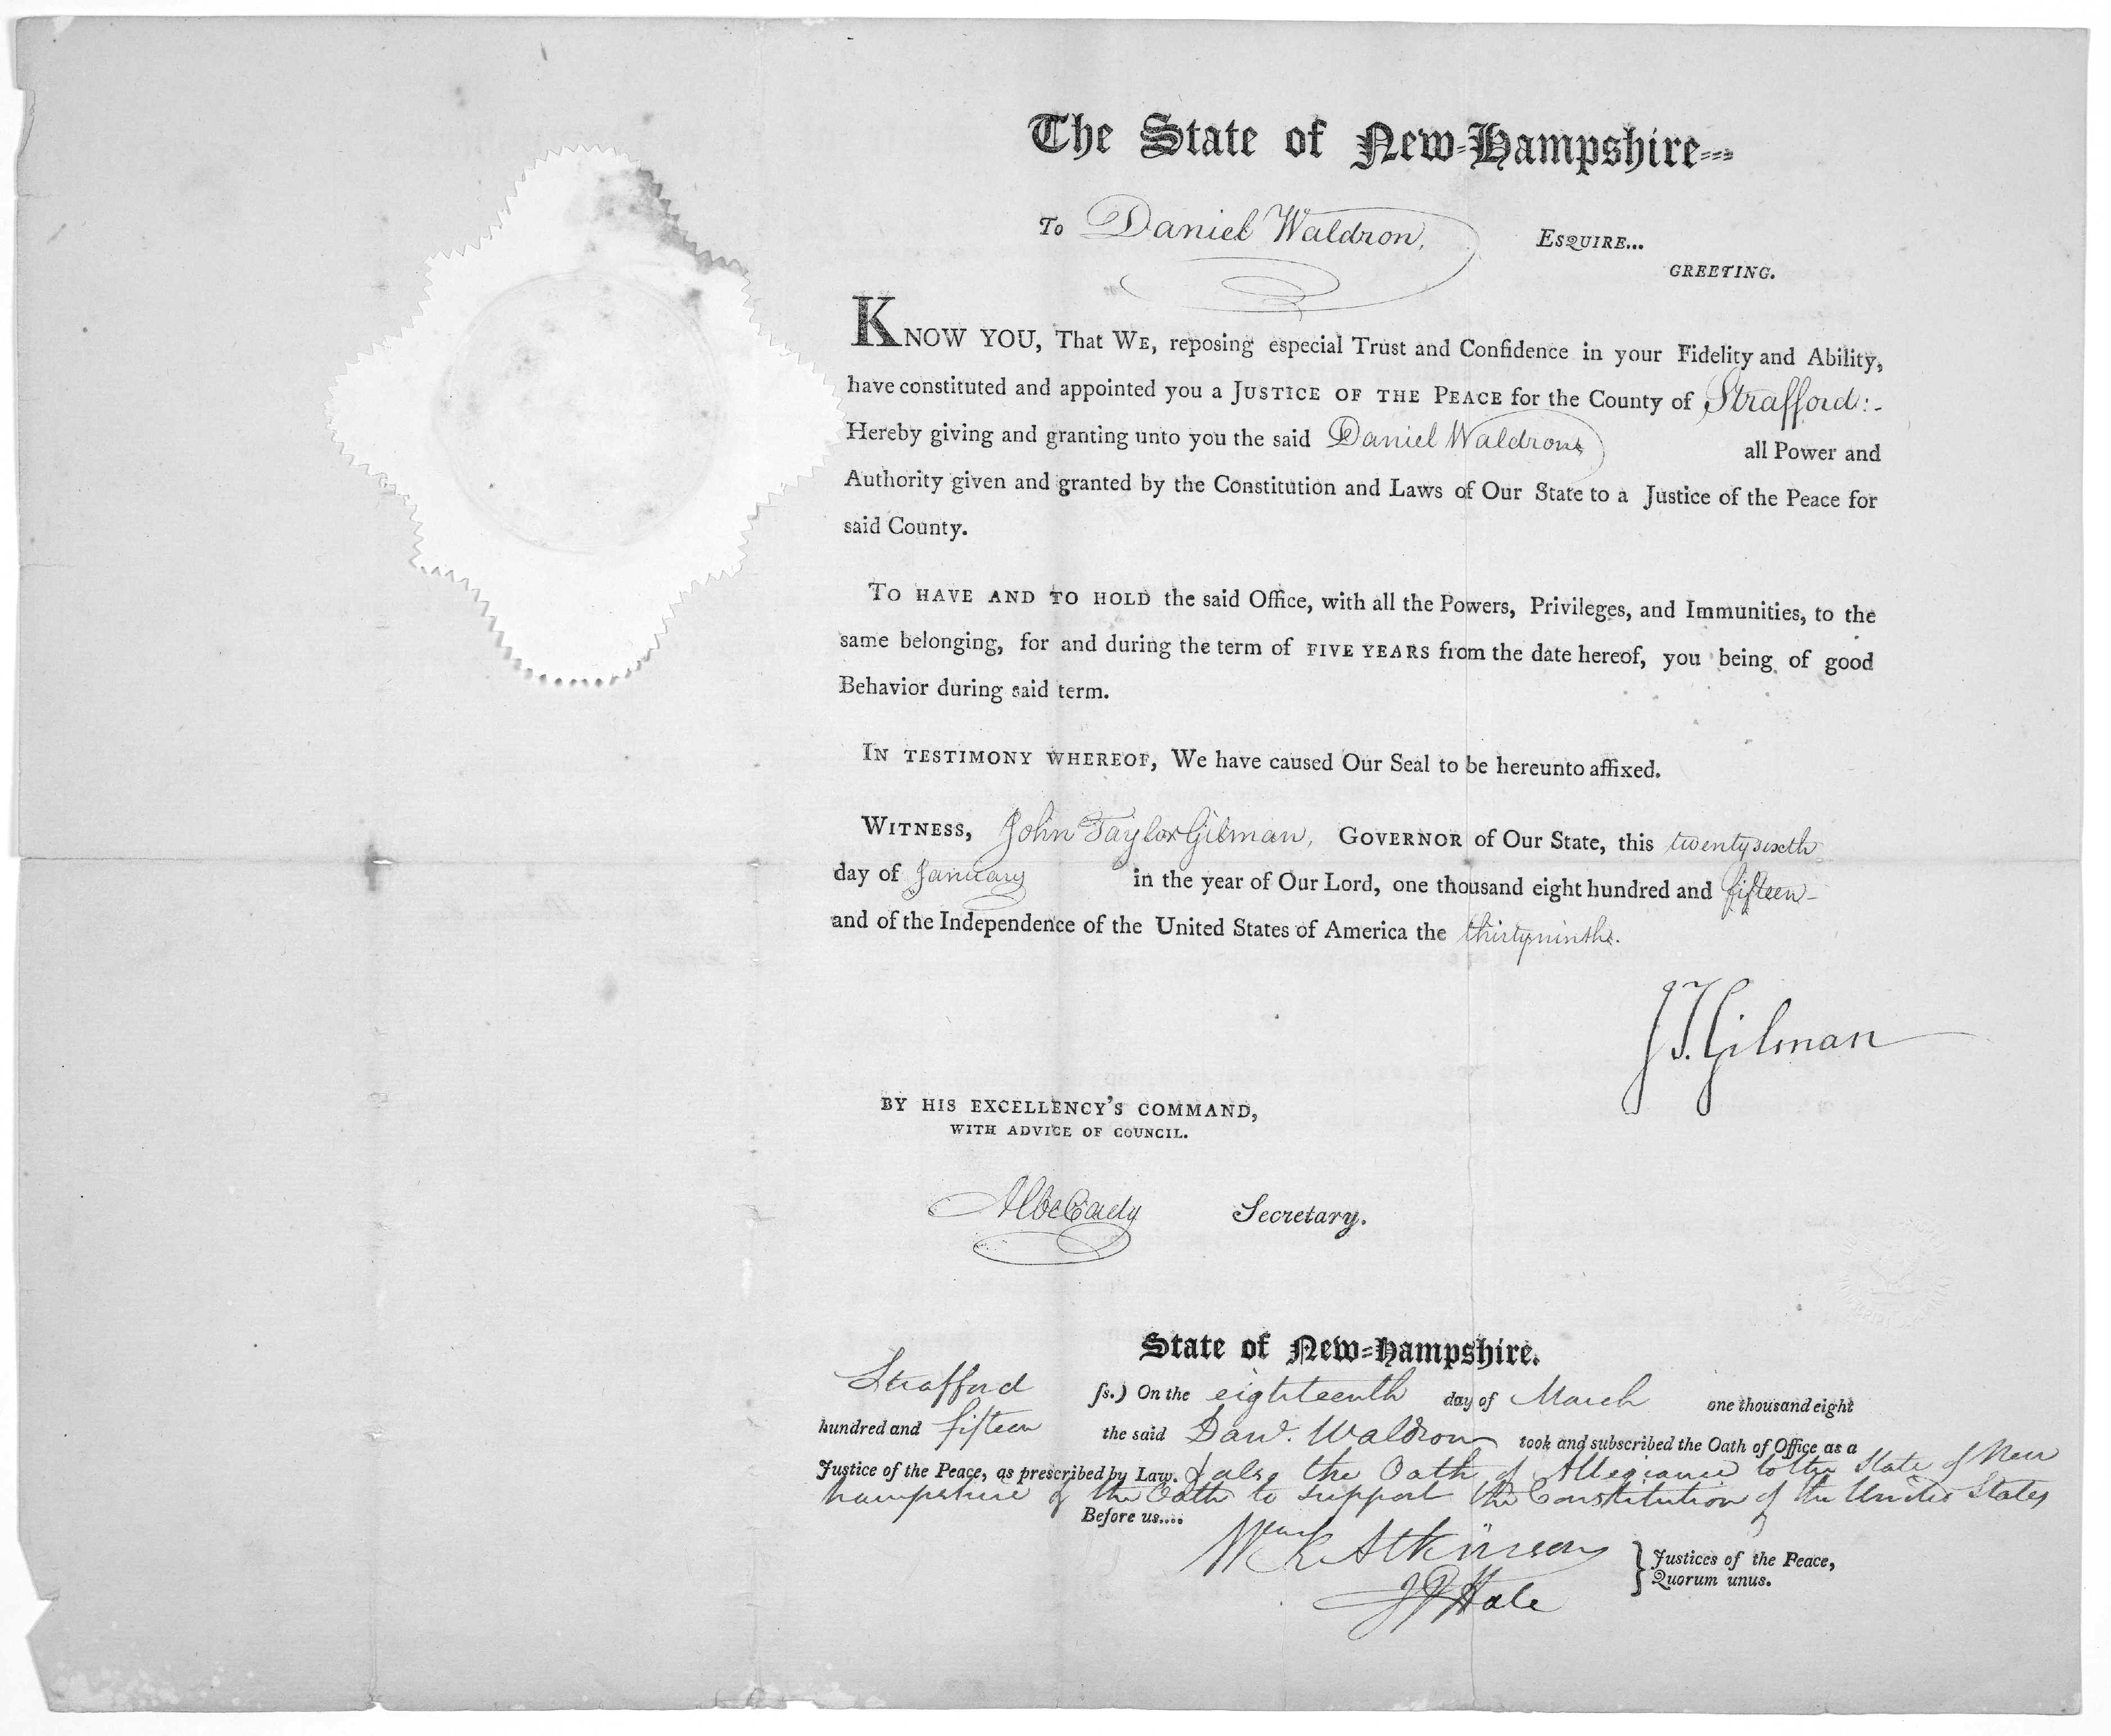 The State of New-Hampshire---
To Daniel Waldron, ESQUIRE...
GREETING.
KNOW YOU, That WE, reposing especial Trust and Confidence in your Fidelity and Ability,
have constituted and appointed you a JUSTICE OF THE PEACE for the County of Strafford:-
Hereby giving and granting unto you the said Daniel Waldron all Power and
Authority given and granted by the Constitution and Laws of Our State to a Justice of the Peace for
said County.
TO HAVE AND TO HOLD the said Office, with all the Powers, Privileges, and Immunities, to the
same belonging, for and during the term of FIVE YEARS from the date hereof, you being of good
Behavior during said term.
IN TESTIMONY WHEREOF, We have caused Our Seal to be hereunto affixed.
WITNESS, John Taylor Gilman, GOVERNOR of Our State, this twentysixth
day of January in the year of Our Lord, one thousand eight hundred and fifteen-
and of the Independence of the United States of America the thirtyninth.
J T. Gilman
BY HIS EXCELLENCY'S COMMAND,
WITH ADVICE OF COUNCIL.
Secretary.
State of New-Hampshire.
Strafford ſs.) On the eighteenth day of March one thousand eight
hundred and fifteen the said Danl. Waldron took and subscribed the Oath of Office as a
Justice of the Peace, as prescribed by Law. & also the Oath of Allegiance to the State of New
hampshire & the Oath to support the Constitution of the United States
Before us....
Wm K Atkinson
J P Hale
Justices of the Peace,
Quorum unus.